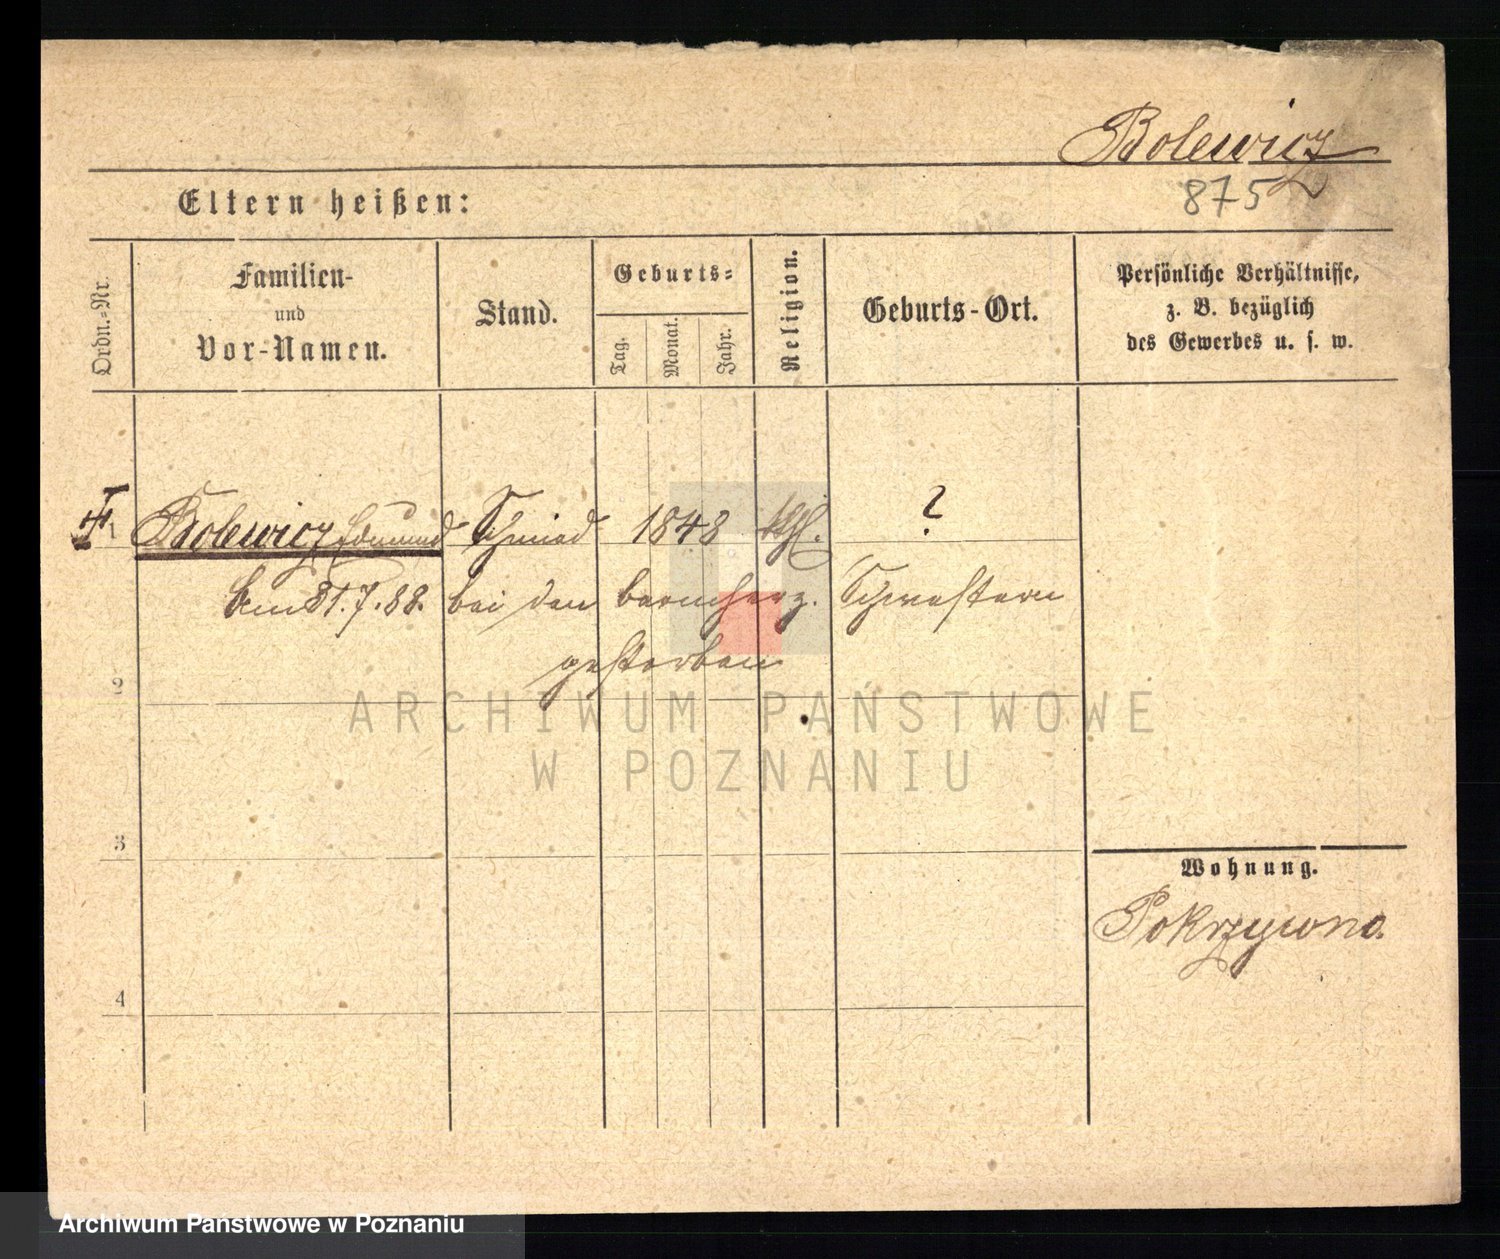 Bolewicz
875
Eltern heißen:
Ordn.-Nr.
Familien-
und
Vor-Namen.
Stand.
Geburts-
Tag.
Monat.
Jahr.
Religion.
Geburts-Ort.
Persönliche Verhältnisse,
z. B. bezüglich
des Gewerbes u. s. w.
1 Bolewicz Edmund Schmied 1848 kth. ?
bei den barmherz. Schwestern
gestorben
2
3
4
Wohnung.
Pokrzywno.
ARCHIWUM PAŃSTWOWE
W POZNANIU
Archiwum Państwowe w Poznaniu